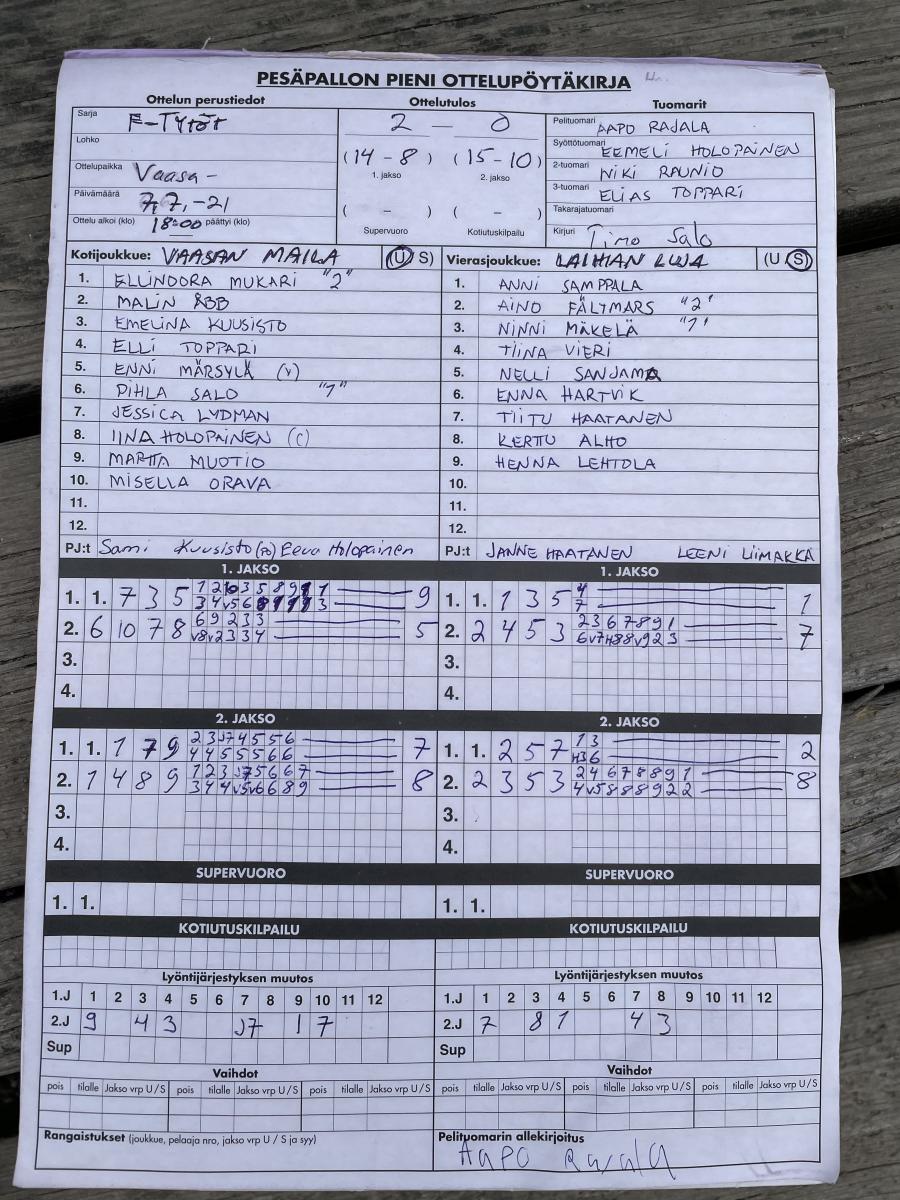 PESÄPALLON PIENI OTTELUPÖYTÄKIRJA
Ottelun perustiedot
Sarja F-Tytöt
Lohko
Ottelupaikka Vaasa -
Päivämäärä 7,7,-21
Ottelu alkoi (klo) 18:00 päättyi (klo)
Ottelutulos
2 - 0
(14 - 8) (15 - 10)
1. jakso 2. jakso
( - ) ( - )
Supervuoro Kotiutuskilpailu
Tuomarit
Pelituomari AAPO RAJALA
Syöttötuomari EEMELI HOLOPAINEN
2-tuomari NIKI RAUNIO
3-tuomari ELIAS TOPPARI
Takarajatuomari
Kirjuri Timo Salo
Kotijoukkue: VAASAN MAILA (U S)
1. ELLINOORA MUKARI "2"
2. MALIN ÅBB
3. EMELINA KUUSISTO
4. ELLI TOPPARI
5. ENNI MÄRSYLÄ (V)
6. PIHLA SALO "1"
7. JESSICA LYDMAN
8. IINA HOLOPAINEN (C)
9. MARTTA MUOTIO
10. MISELLA ORAVA
11.
12.
PJ:t Sami Kuusisto (PJ) Eeva Holopainen
Vierasjoukkue: LAIHIAN LUJA (U S)
1. ANNI SAMPPALA
2. AINO FÄLTMARS "2"
3. NINNI MÄKELÄ "1"
4. TIINA VIERI
5. NELLI SANJAMA
6. ENNA HARTVIK
7. TIITU HAATANEN
8. KERTTU ALHO
9. HENNA LEHTOLA
10.
11.
12.
PJ:t JANNE HAATANEN LEENI LIIMAKKA
1. JAKSO
1. 1. 7 3 5 9
2. 6 10 7 8 6 9 2 3 3 5
v8v2 3 3 4
3.
4.
1. JAKSO
1. 1. 1 3 5 4 1
7
2. 2 4 5 3 2 3 6 7 8 9 1 7
3.
4.
2. JAKSO
1. 1. 1 7 9 2 3 J7 4 5 5 6 7
4 4 5 5 5 6 6
2. 1 4 8 9 1 2 3 J7 5 6 6 7 8
3 4 4 v5 v6 6 8 9
3.
4.
2. JAKSO
1. 1. 2 5 7 1 3 2
H3 6
2. 2 3 5 3 2 4 6 7 8 8 9 1 8
4 v5 8 8 8 9 2 2
3.
4.
SUPERVUORO
1. 1.
SUPERVUORO
1. 1.
KOTIUTUSKILPAILU
KOTIUTUSKILPAILU
Lyöntijärjestyksen muutos
1.J 1 2 3 4 5 6 7 8 9 10 11 12
2.J 9 4 3 J7 1 7
Sup
Lyöntijärjestyksen muutos
1.J 1 2 3 4 5 6 7 8 9 10 11 12
2.J 7 8 1 4 3
Sup
Vaihdot
pois tilalle Jakso vrp U/S pois tilalle Jakso vrp U/S pois tilalle Jakso vrp U/S
Vaihdot
pois tilalle Jakso vrp U/S pois tilalle Jakso vrp U/S pois tilalle Jakso vrp U/S
Rangaistukset (joukkue, pelaaja nro, jakso vrp U / S ja syy)
Pelituomarin allekirjoitus
Aapo Rajala